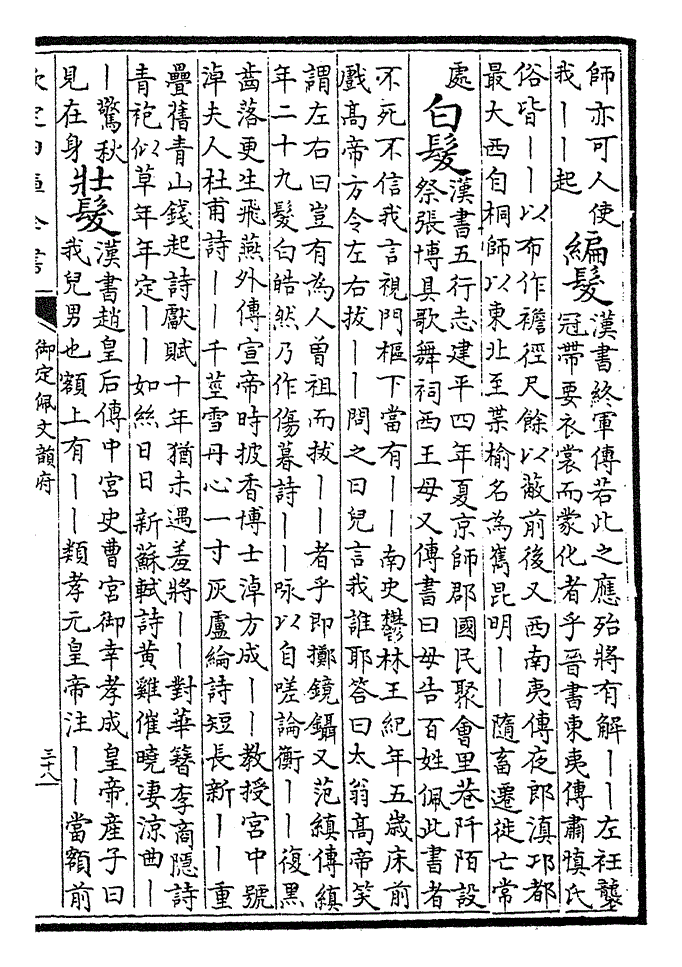 師亦可人使
我——起
編髮
漢書終軍傳若此之應殆將有解——左衽襲
冠帶要衣裳而蒙化者乎晉書東夷傳肅慎氏
俗皆——以布作襜徑尺餘以蔽前後又西南夷傳夜郎滇邛都
最大西自桐師以東北至葉榆名為嶲昆明——隨畜遷徙亡常
處
白髮
漢書五行志建平四年夏京師郡國民聚會里巷阡陌設
祭張博具歌舞祠西王母又傳書曰母告百姓佩此書者
不死不信我言視門樞下當有——南史鬱林王紀年五歲床前
戲高帝方令左右拔——問之曰兒言我誰耶答曰太翁高帝笑
謂左右曰豈有為人曾祖而拔——者乎即擲鏡鑷又范縝傳縝
年二十九髮白皓然乃作傷暮詩——咏以自嗟論衡——復黑
齒落更生飛燕外傳宣帝時披香博士淖方成——教授宮中號
淖夫人杜甫詩——千莖雪丹心一寸灰盧綸詩短長新——重
疊舊青山錢起詩獻賦十年猶未遇羞將——對華簪李商隱詩
青袍似草年年定——如絲日日新蘇軾詩黃雞催曉淒涼曲—
—驚秋
見在身
壯髮
漢書趙皇后傳中宮史曹宮御幸孝成皇帝產子曰
我兒男也額上有——類孝元皇帝注——當額前
欽定四庫全書
御定佩文韻府
三十八